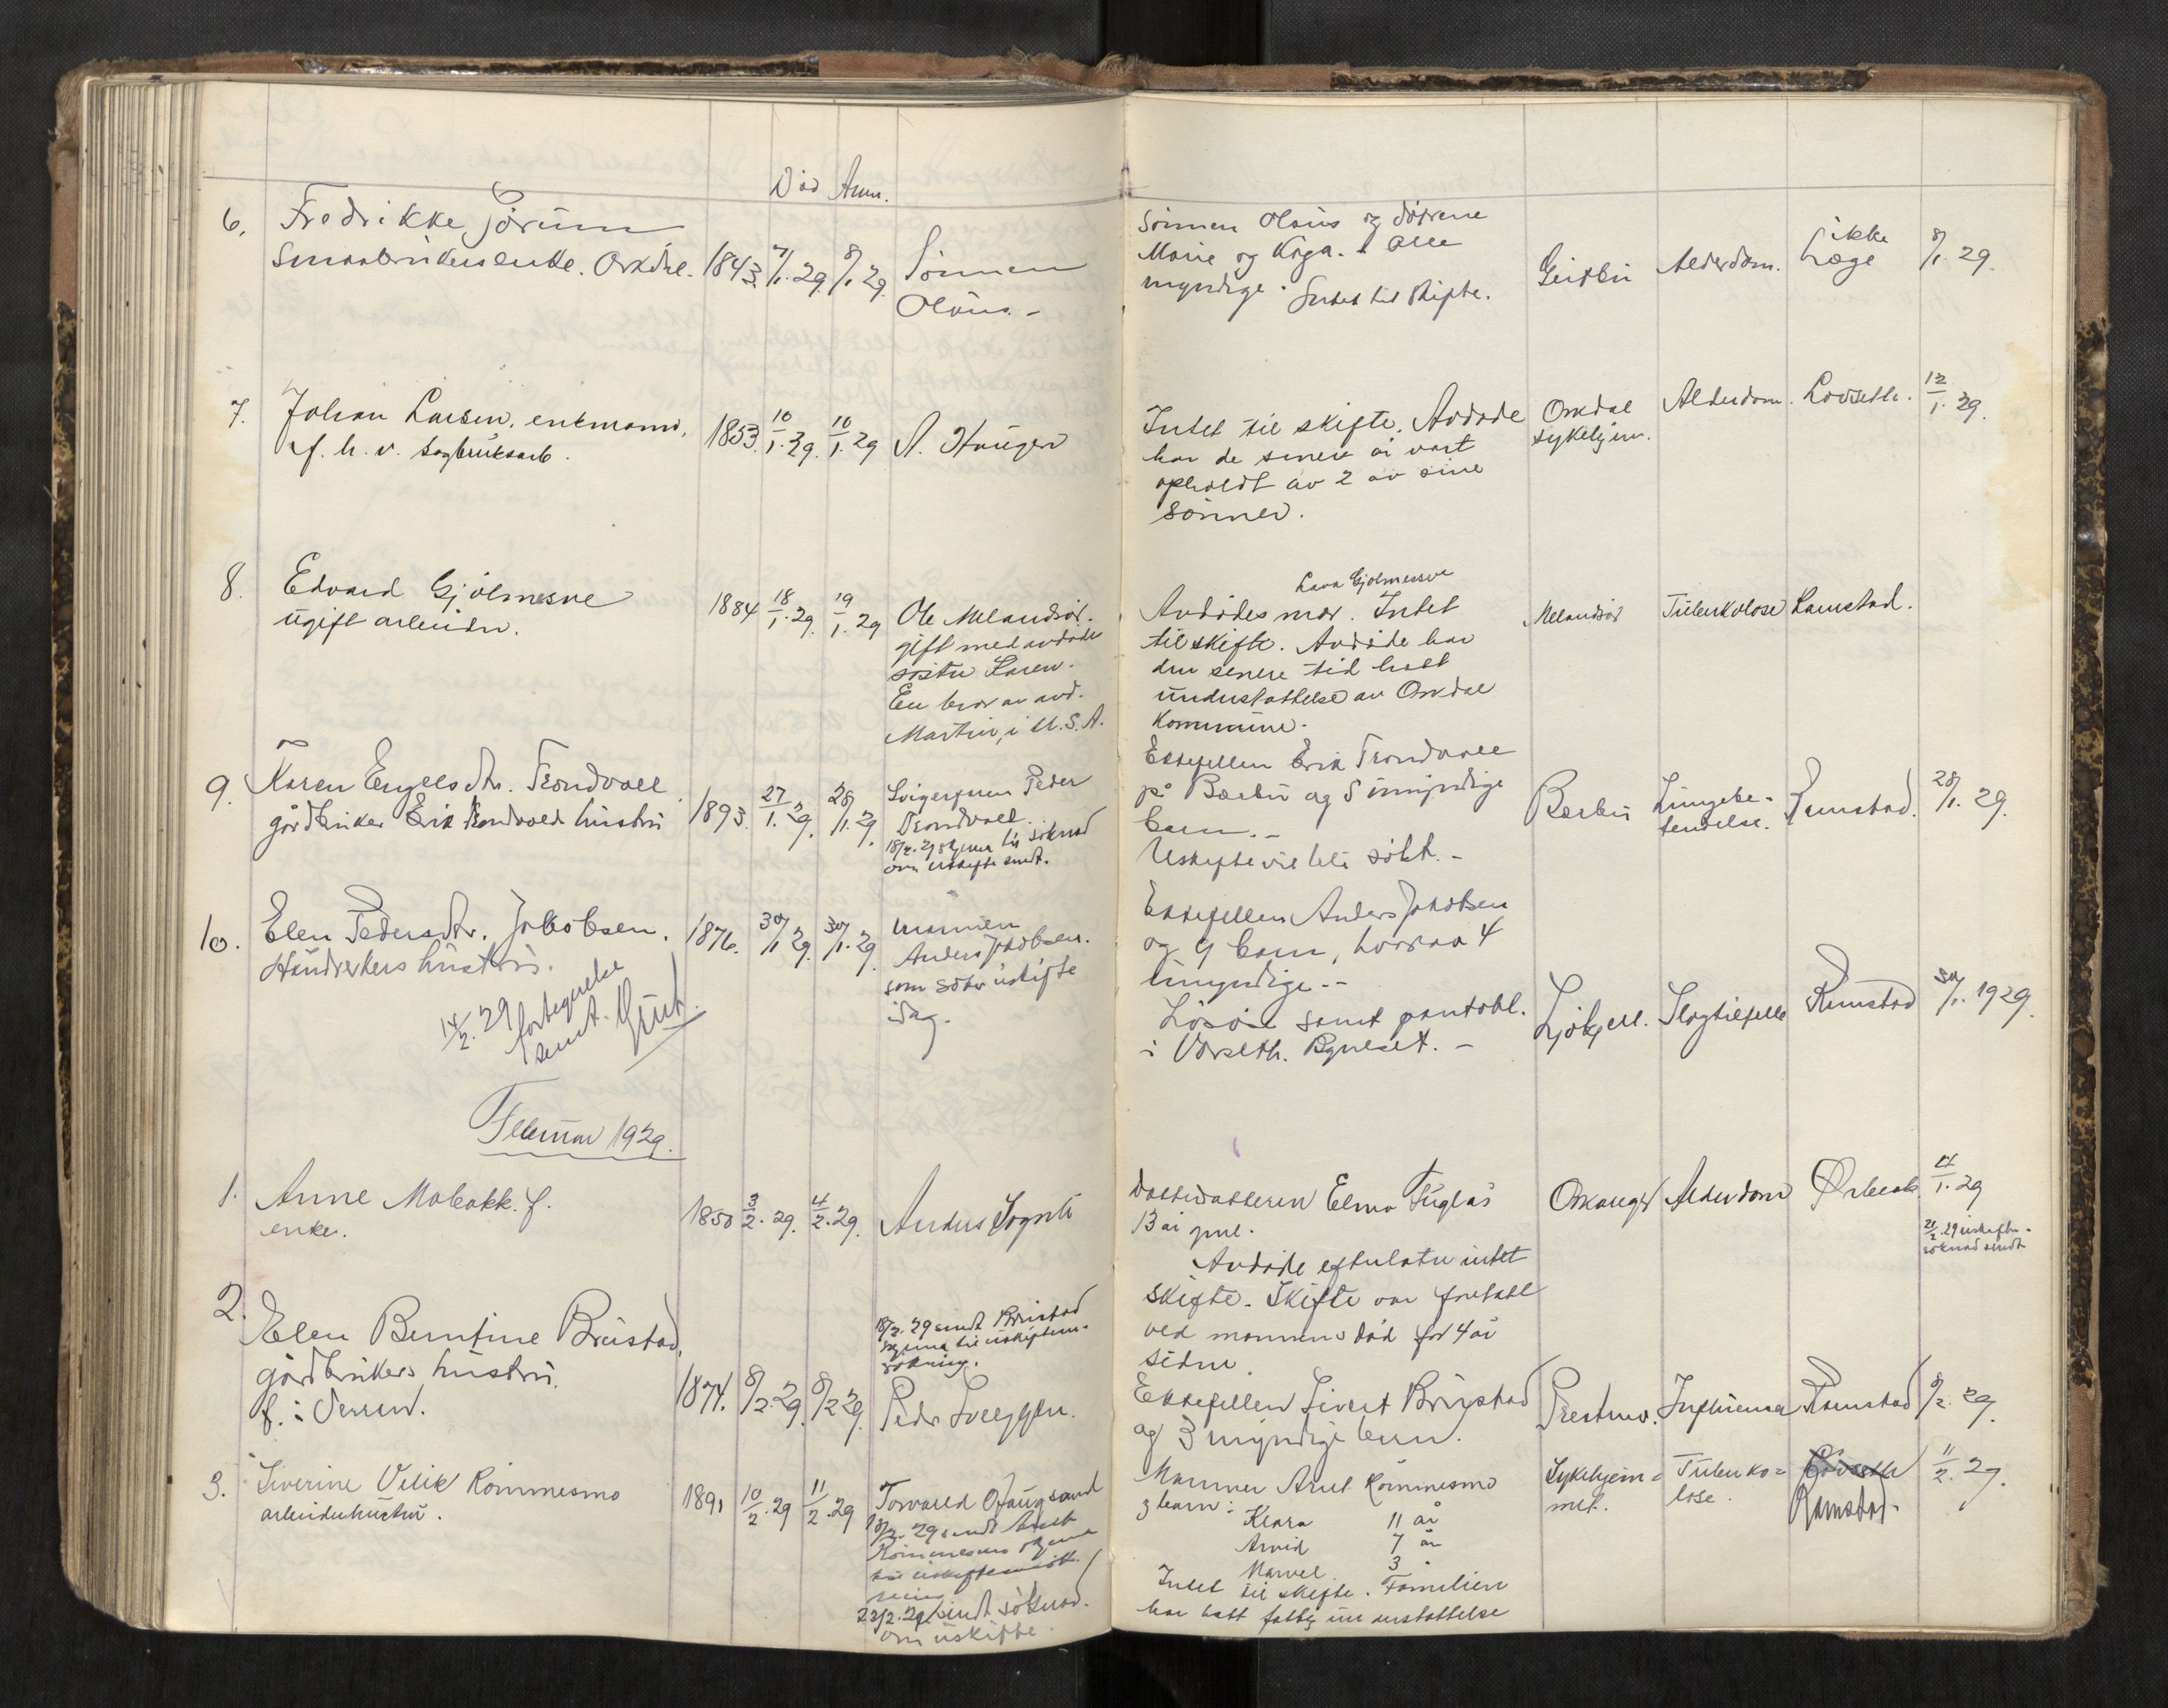 Död Anm.
6. Fredrikke Jörum
Smaabrukerenke. Orkdal. 1843. 7/1. 29. 8/1 29. Sönnen
Olaus.-
Sönnen Olaus og dötrene
Marie og Kaja. Alle
myndige. Intet til skifte.
Geitbu Alderdom. ikke
Læge 8/1. 29.
7. Johan Larsen, enkemand,
f. h. v. sagbruksarb. 1853. 10/1. 29. 10/1. 29 A. Haugen
Intet til skifte. Avdöde
har de senere år vært
opholdt av 2 av sine
sönner.
Orkdal
sykehjem. Alderdom. Lovseth. 12/1. 29.
8. Edvard Gjölmesne
ugift arbeider. 1884 18/1. 29. 19/1. 29 Ole Melandsö.
gift med avdödes
söster Karen.
En bror av avd.
Martin, i U.S.A.
Lava Gjölmesne
Avdödes mor. Intet
til skifte. Avdöde har
den senere tid hatt
understöttelse av Orkdal
Kommune.
Melandsö Tuberkulose Ramstad.
9. Karen Engelsdtr. Trondvoll
gårdbruker Erik Trondvolds hustru 1893. 27/1. 29. 28/1. 29. Svigerfaren Peder
Trondvoll.
18/2. 29 skjema til söknad
om uskifte sendt.
Ektefellen Erik Trondvoll
på Bærbu og 5 umyndige
barn.-
Uskifte vil bli sökt.-
Bærbu Lungebe-
tendelse. Ramstad. 28/1. 29.
10. Elen Pedersdtr. Jakobsen.
Håndverkers hustru. 1876. 30/1 29. 30/1. 29. mannen
Anders Jakobsen.
som söker uskifte
idag.
14/2. 29 fortegnelse
sendt.
Ektefellen Anders Jakobsen
og 9 barn, hvorav 4
umyndige.--
Lösöre samt pantobl.
i Vorseth. Byneset.-
Ljökjell. Slagtilfelle Ramstad 30/1. 1929.
Februar 1929.
1. Anne Mobakk. f.
enke. 1850 3/2. 29. 4/2. 29. Anders Sognli
Datterdatteren Elma Fuglås
13 år gml.
Avdöde efterlater intet
skifte. Skifte var foretatt
ved mannens död for 4 år
siden.
Orkanger Alderdom Ørbeck 4/1. 29
21/2. 29 uskifte-
söknad sendt
2. Elen Berntine Brustad,
gårdbrukers hustru.
1874. 8/2. 29. 8/2 29.
18/2. 29 sendt Brustad
skjema til uskiftean-
sökning.
Ektefellen Sivert Brustad
og 3 myndige barn.
Influensa Ramstad 8/2. 29.
3. Siverine Vilik Rommesmo
arbeiderhustru. 1891 10/2. 29 11/2. 29 Torvald Ofaugsand
18/2. 29 sendt Arnt
Rommesmo skjema
22/2. 29 sendt söknad
om uskifte.
Mannen Arnt Rommesmo
3 barn:
Klara 11 år
Arvid 7 år
Marvel 3 "
Intet til skifte. Familien
har hatt fattig understöttelse
Sykehjem=
met. Tuberko=
lose. Lovseth
Ramstad. 11/2. 29.